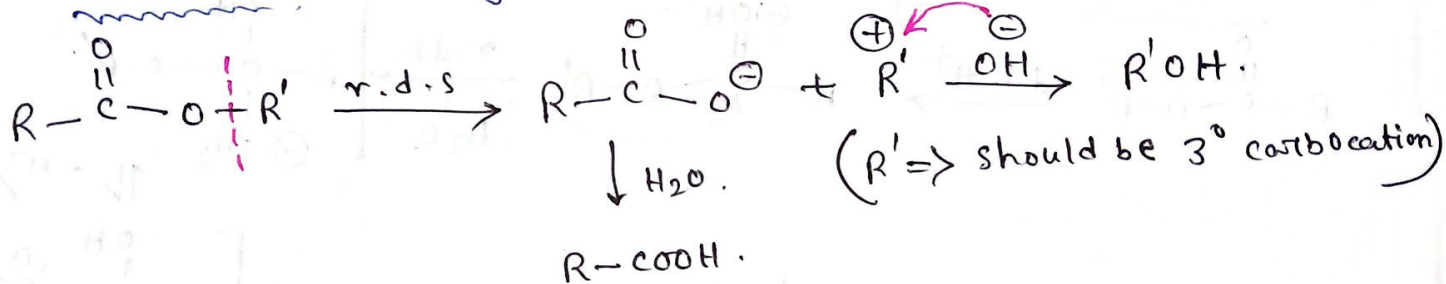 R-C(=O)-O-R' r.d.s → R-C(=O)-O⊖ + R'⊕ ⊖OH → R'OH.
↓ H₂O.
(R' => should be 3° carbocation)
R-COOH.